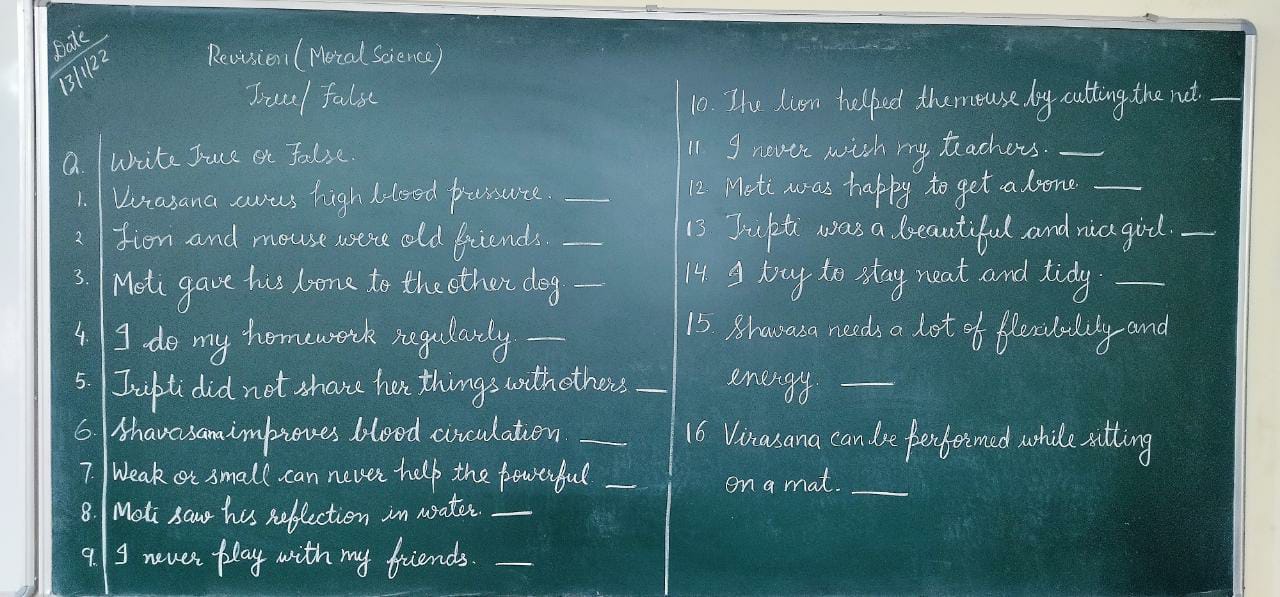 Date
13/1/22
Revision (Moral Science)
True/ False
Q. Write True or False.
1. Virasana cures high blood pressure. ___
2 Lion and mouse were old friends. ___
3. Moti gave his bone to the other dog. ___
4. I do my homework regularly. ___
5. Tripti did not share her things with others ___
6. Shavasana improves blood circulation. ___
7. Weak or small can never help the powerful ___
8. Moti saw his reflection in water. ___
9. I never play with my friends. ___
10. The lion helped the mouse by cutting the net. ___
11. I never wish my teachers. ___
12. Moti was happy to get a bone ___
13 Tripti was a beautiful and nice girl. ___
14. I try to stay neat and tidy. ___
15. Shavasa needs a lot of flexibility and
energy. ___
16 Virasana can be performed while sitting
on a mat. ___